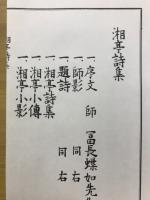 湘亭詩集
一序文　師　冨長蝶如先
一師影　同右
一題詩　同右
一湘亭詩集
一湘亭小傳
一湘亭小影
湘亭詩集